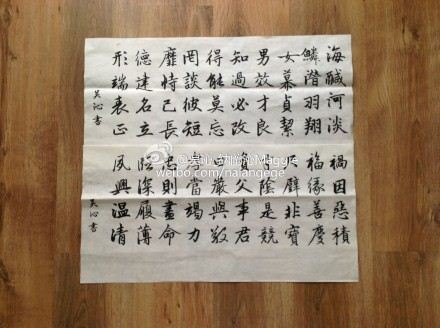 海醎河淡
鱗潛羽翔
女慕貞絜
男效才良
知過必改
得能莫忘
罔談彼短
靡恃己長
德建名立
形端表正
吴沁書
禍因惡積
福緣善慶
尺璧非寶
寸陰是競
資父事君
曰嚴與敬
孝當竭力
忠則盡命
臨深履薄
夙興温凊
吴沁書
Maggie
weibo.com/nalangege